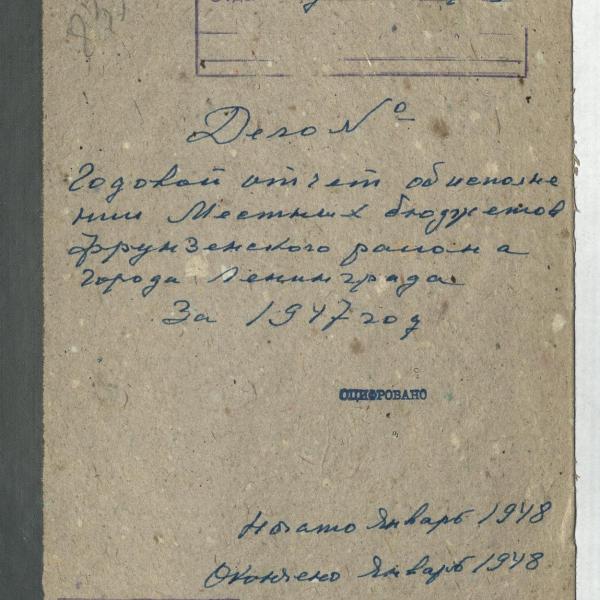 Дело №
Годовой отчет об исполне
нии Местных бюджетов
Фрунзенского района
города Ленинграда
За 1947 год
ОЦИФРОВАНО
Начато Январь 1948
Окончено Январь 1948